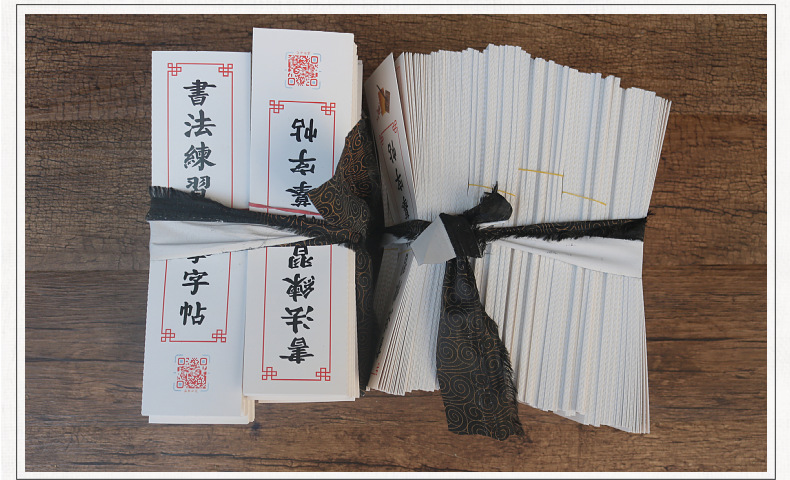 書法練習字帖
書法練習摹字帖
字帖